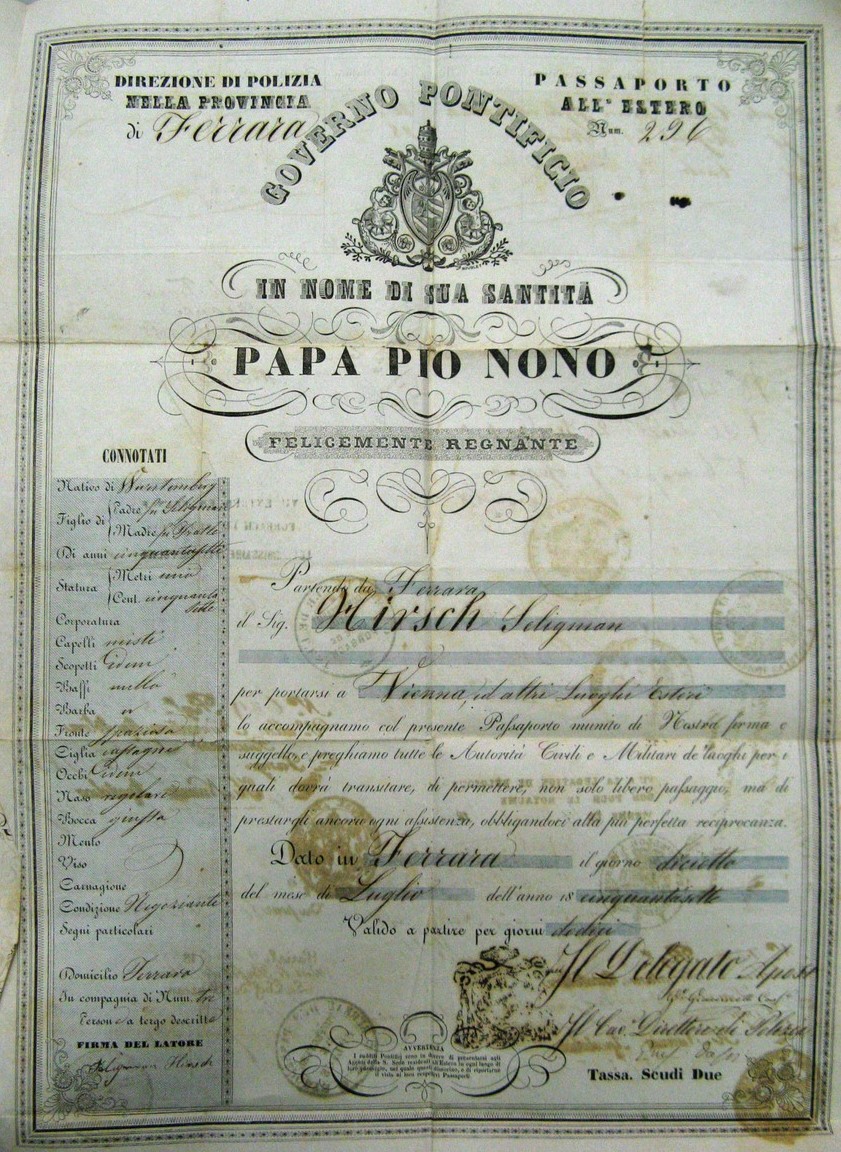 DIREZIONE DI POLIZIA
NELLA PROVINCIA
di Ferrara
GOVERNO PONTIFICIO
PASSAPORTO
ALL' ESTERO
Num. 296
IN NOME DI SUA SANTITÀ
PAPA PIO NONO
FELICEMENTE REGNANTE
CONNOTATI
Nativo di Wurtemburg
Figlio di Padre fu Seligman
Madre fu
Di anni cinquantasette
Statura Metri uno
Cent. cinquanta
sette
Corporatura
Capelli misti
Scopetti idem
Baffi nulla
Barba
Fronte spaziosa
Ciglia castagne
Occhi idem
Naso regolare
Bocca giusta
Mento
Viso
Carnagione
Condizione Negoziante
Segni particolari
Domicilio Ferrara
In compagnia di Num. tre
Persone a tergo descritte
FIRMA DEL LATORE
Seligman Hirsch
Partendo da Ferrara
il Sig. Hirsch Seligman
per portarsi a Vienna, ed altri Luoghi Esteri
lo accompagnamo col presente Passaporto munito di Nostra firma e
suggello, e preghiamo tutte le Autorità Civili e Militari de' luoghi per i
quali dovrà transitare, di permettere, non solo libero passaggio, ma di
prestargli ancora ogni assistenza, obbligandoci alla più perfetta reciprocanza.
Dato in Ferrara il giorno diciotto
del mese di Luglio dell'anno 18 cinquantasette
Valido a partire per giorni dodici
Il Delegato Apost
Il Cav. Direttore di Polizia
AVVERTENZA
Tassa. Scudi Due